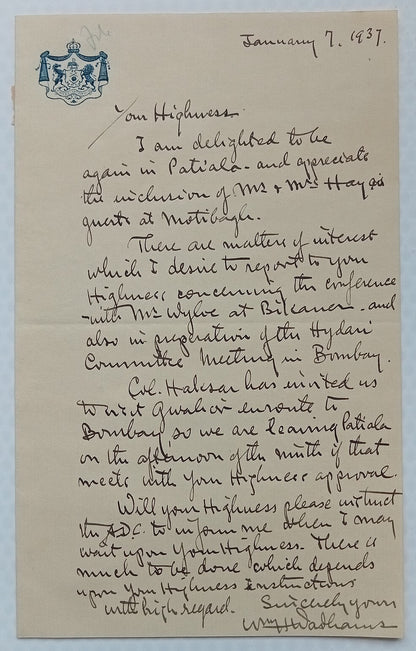 File
January 7, 1937.
Your Highness
I am delighted to be
again in Patiala - and appreciate
the inclusion of Mr & Mrs Hay as
guests at Motibagh.
There are matters of interest
which I desire to report to your
Highness concerning the conference
- with Mr Wylie at Bikaner - and
also in preparation of the Hydari
Committee Meeting in Bombay.
Col. Haksar has invited us
to visit Gwalior enroute to
Bombay, so we are leaving Patiala
on the afternoon of the ninth if that
meets with Your Highness approval.
Will your Highness please instruct
the A.D.C. to inform me when I may
wait upon Your Highness. There is
much to be done which depends
upon Your Highness instructions
with high regard. Sincerely yours
Wm H Wadhams